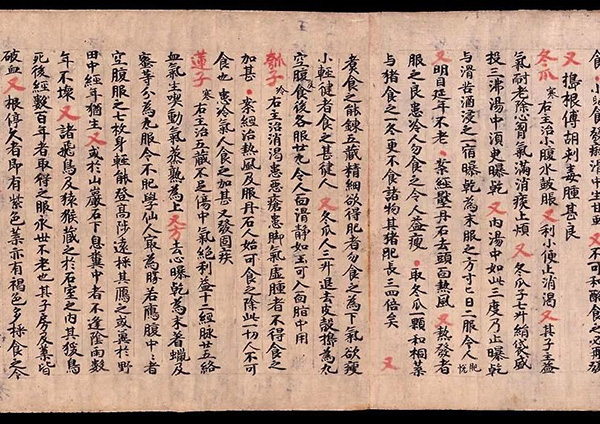 小兒食發癇滑中生甘
又 搗根傅胡刺毒腫甚良
冬瓜 寒 右主治小腹水鼓脹 又利小便止消渴 又其子主益
氣耐老除心胷氣滿消痰止煩 又冬瓜子七升絹袋盛
投三沸湯中須臾曝乾 又內湯中如此三度乃止曝乾
与清苦酒浸之一宿曝乾為末服之方寸匕日二服令人肥悅
又明目延年不老 案經壓丹石去頭面熱風 又熱發者
服之良患冷人勿食之令人益瘦 取冬瓜一顆和桐葉
与猪食之一冬更不食諸物其猪肥長三四倍矣 又
煮食之能鍊五藏精細欲得肥者勿食之為下氣欲瘦
小輕健者食之甚健人 又冬瓜人三升退去皮殼搗為丸
空腹及食後各服廿丸令人面滑靜如玉可入面脂中用
瓠子 冷 右主治消渴患惡瘡患脚氣虛腫者不得食之
加甚 案經治熱風及服丹石人始可食之除此一切人不可
食也 患冷氣人食之加甚又發固疾
蓮子 寒 右主治五藏不足傷中氣絕利益十二經脉廿五絡
血氣生喫動氣蒸熟為上 又方去心曝乾為末着蠟及
蜜等分為丸服令不肥學仙人取為勝若鴈腹中者
空腹服之七枚身輕能登高涉遠採其鴈之或糞於野
田中經年猶生 又或於山巖石下息糞中者不逢陰雨數
年不壞 又諸飛鳥及猿猴藏之於石室之內其猨鳥
死後經數百年者取得之服永世不老也其子房及葉皆
破血 又根停久者即有紫色葉亦有褐色多採食之令